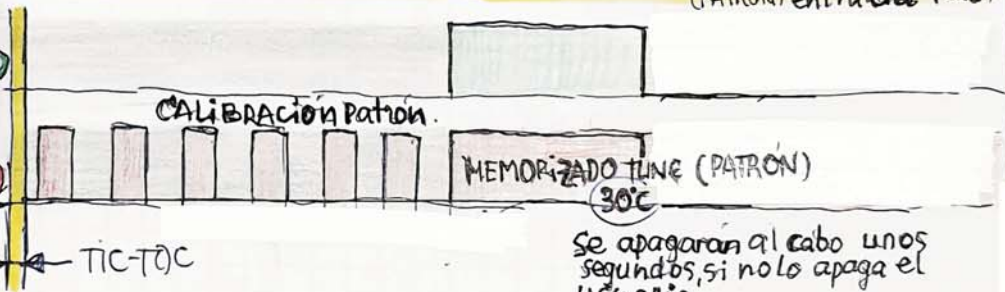 (PATRÓN) entra una
CALIBRACIÓN Patrón.
MEMORIZADO TUNE (PATRÓN)
30°C
TIC-TOC
se apagarán al cabo unos
segundos, si no lo apaga el